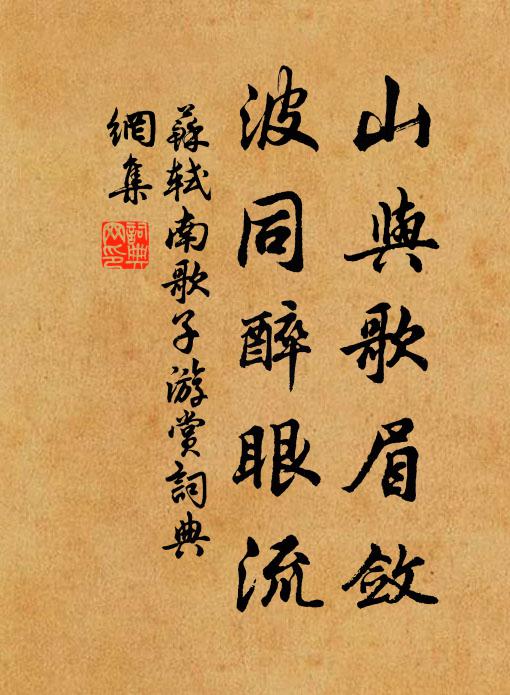 山與歌眉斂
波同醉眼流
蘇軾南歌子游賞詞典
網集
詞典網印